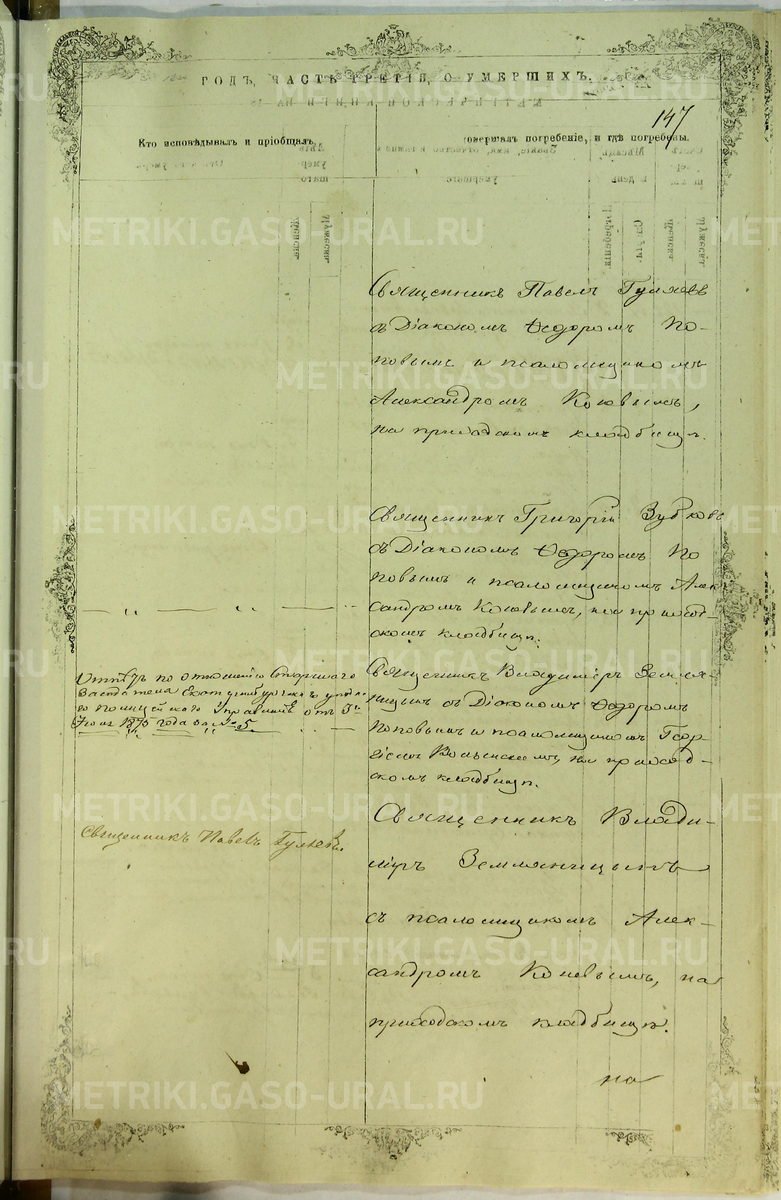 ГОДЪ, ЧАСТЬ ТРЕТІЯ, О УМЕРШИХЪ.
147
Кто исповѣдывалъ и пріобщалъ.
совершалъ погребеніе, и гдѣ погребены.
Священникъ Павелъ Гуляевъ
съ Діакономъ Ѳедоромъ По-
повымъ и псаломщикомъ
Александромъ Коковымъ,
на приходскомъ кладбищѣ.
Священникъ Григорій Зубковъ
съ Діакономъ Ѳедоромъ По
повымъ и псаломщикомъ Алек
сандромъ Коковымъ, на приход-
скомъ кладбищѣ.
по отношенію
Полицейскаго Управленія отъ 5го
1875 года за № 5
Священникъ Владиміръ Земля-
ницынъ съ Діакономъ Ѳедоромъ
Поповымъ и псаломщикомъ Геор-
гіемъ на приход-
скомъ кладбищѣ.
Священникъ Павелъ Гуляевъ.
Священникъ Влади-
міръ Земляницынъ
съ псаломщикомъ Алек-
сандромъ Коковымъ, на
приходскомъ кладбищѣ.
на
METRIKI.GASO-URAL.RU